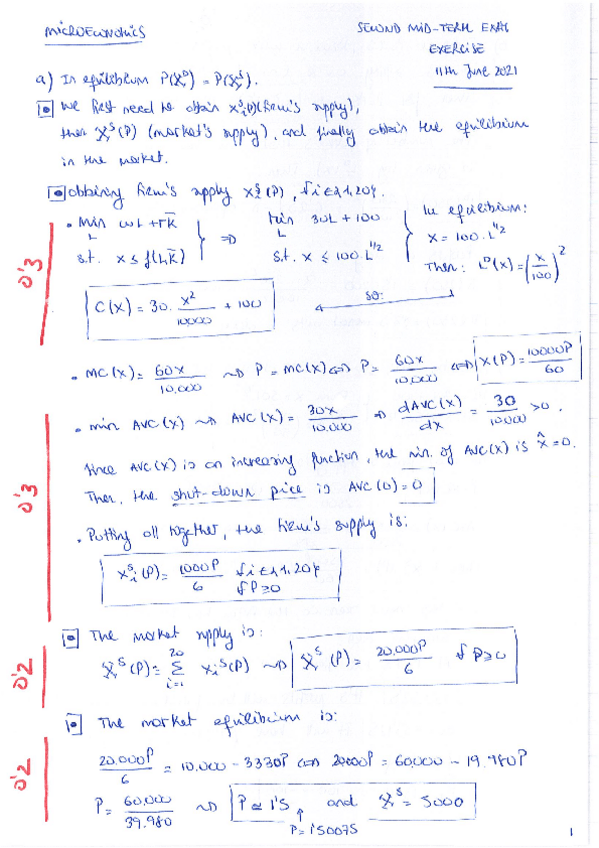 MICROECONOMICS
SECOND MID-TERM EXAM
EXERCISE
11th June 2021
a) In equilibrium P(X^D) = P(X^S).
We first need to obtain x_i^s(P) (firm's supply),
then X^S(P) (market's supply), and finally obtain the equilibrium
in the market.
Obtaining firm's supply x_i^s(P), ∀i∈{1,20}.
0'3
• Min wL + rK̄
L
s.t. x ≤ f(L,K̄)
⇒
Min 30L + 100
L
s.t. x ≤ 100·L^1/2
In equilibrium:
x = 100·L^1/2
Then: L^D(x) = (x/100)^2
so:
C(x) = 30· x^2/10000 + 100
• MC(x) = 60x/10.000 ~> P = MC(x) ⇔ P = 60x/10.000 ⇔ x(P) = 10000P/60
0'3
• min AVC(x) ~> AVC(x) = 30x/10.000 ⇒ dAVC(x)/dx = 30/10000 > 0.
Since AVC(x) is an increasing function, the min. of AVC(x) is x̂=0.
Then, the shut-down price is AVC(0) = 0
• Putting all together, the firm's supply is:
x_i^s(P) = 1000P/6 ∀i∈{1,20} ∀P≥0
0'2
The market supply is:
X^S(P) = Σ_{i=1}^{20} x_i^s(P) ~> X^S(P) = 20.000P/6 ∀P≥0
The market equilibrium is:
0'2
20.000P/6 = 10.000 - 3330P ⇔ 20000P = 60,000 - 19.980P
P = 60.000/39.980 ~> P ≃ 1'5 and X^S = 5000
P = 1'50075
1